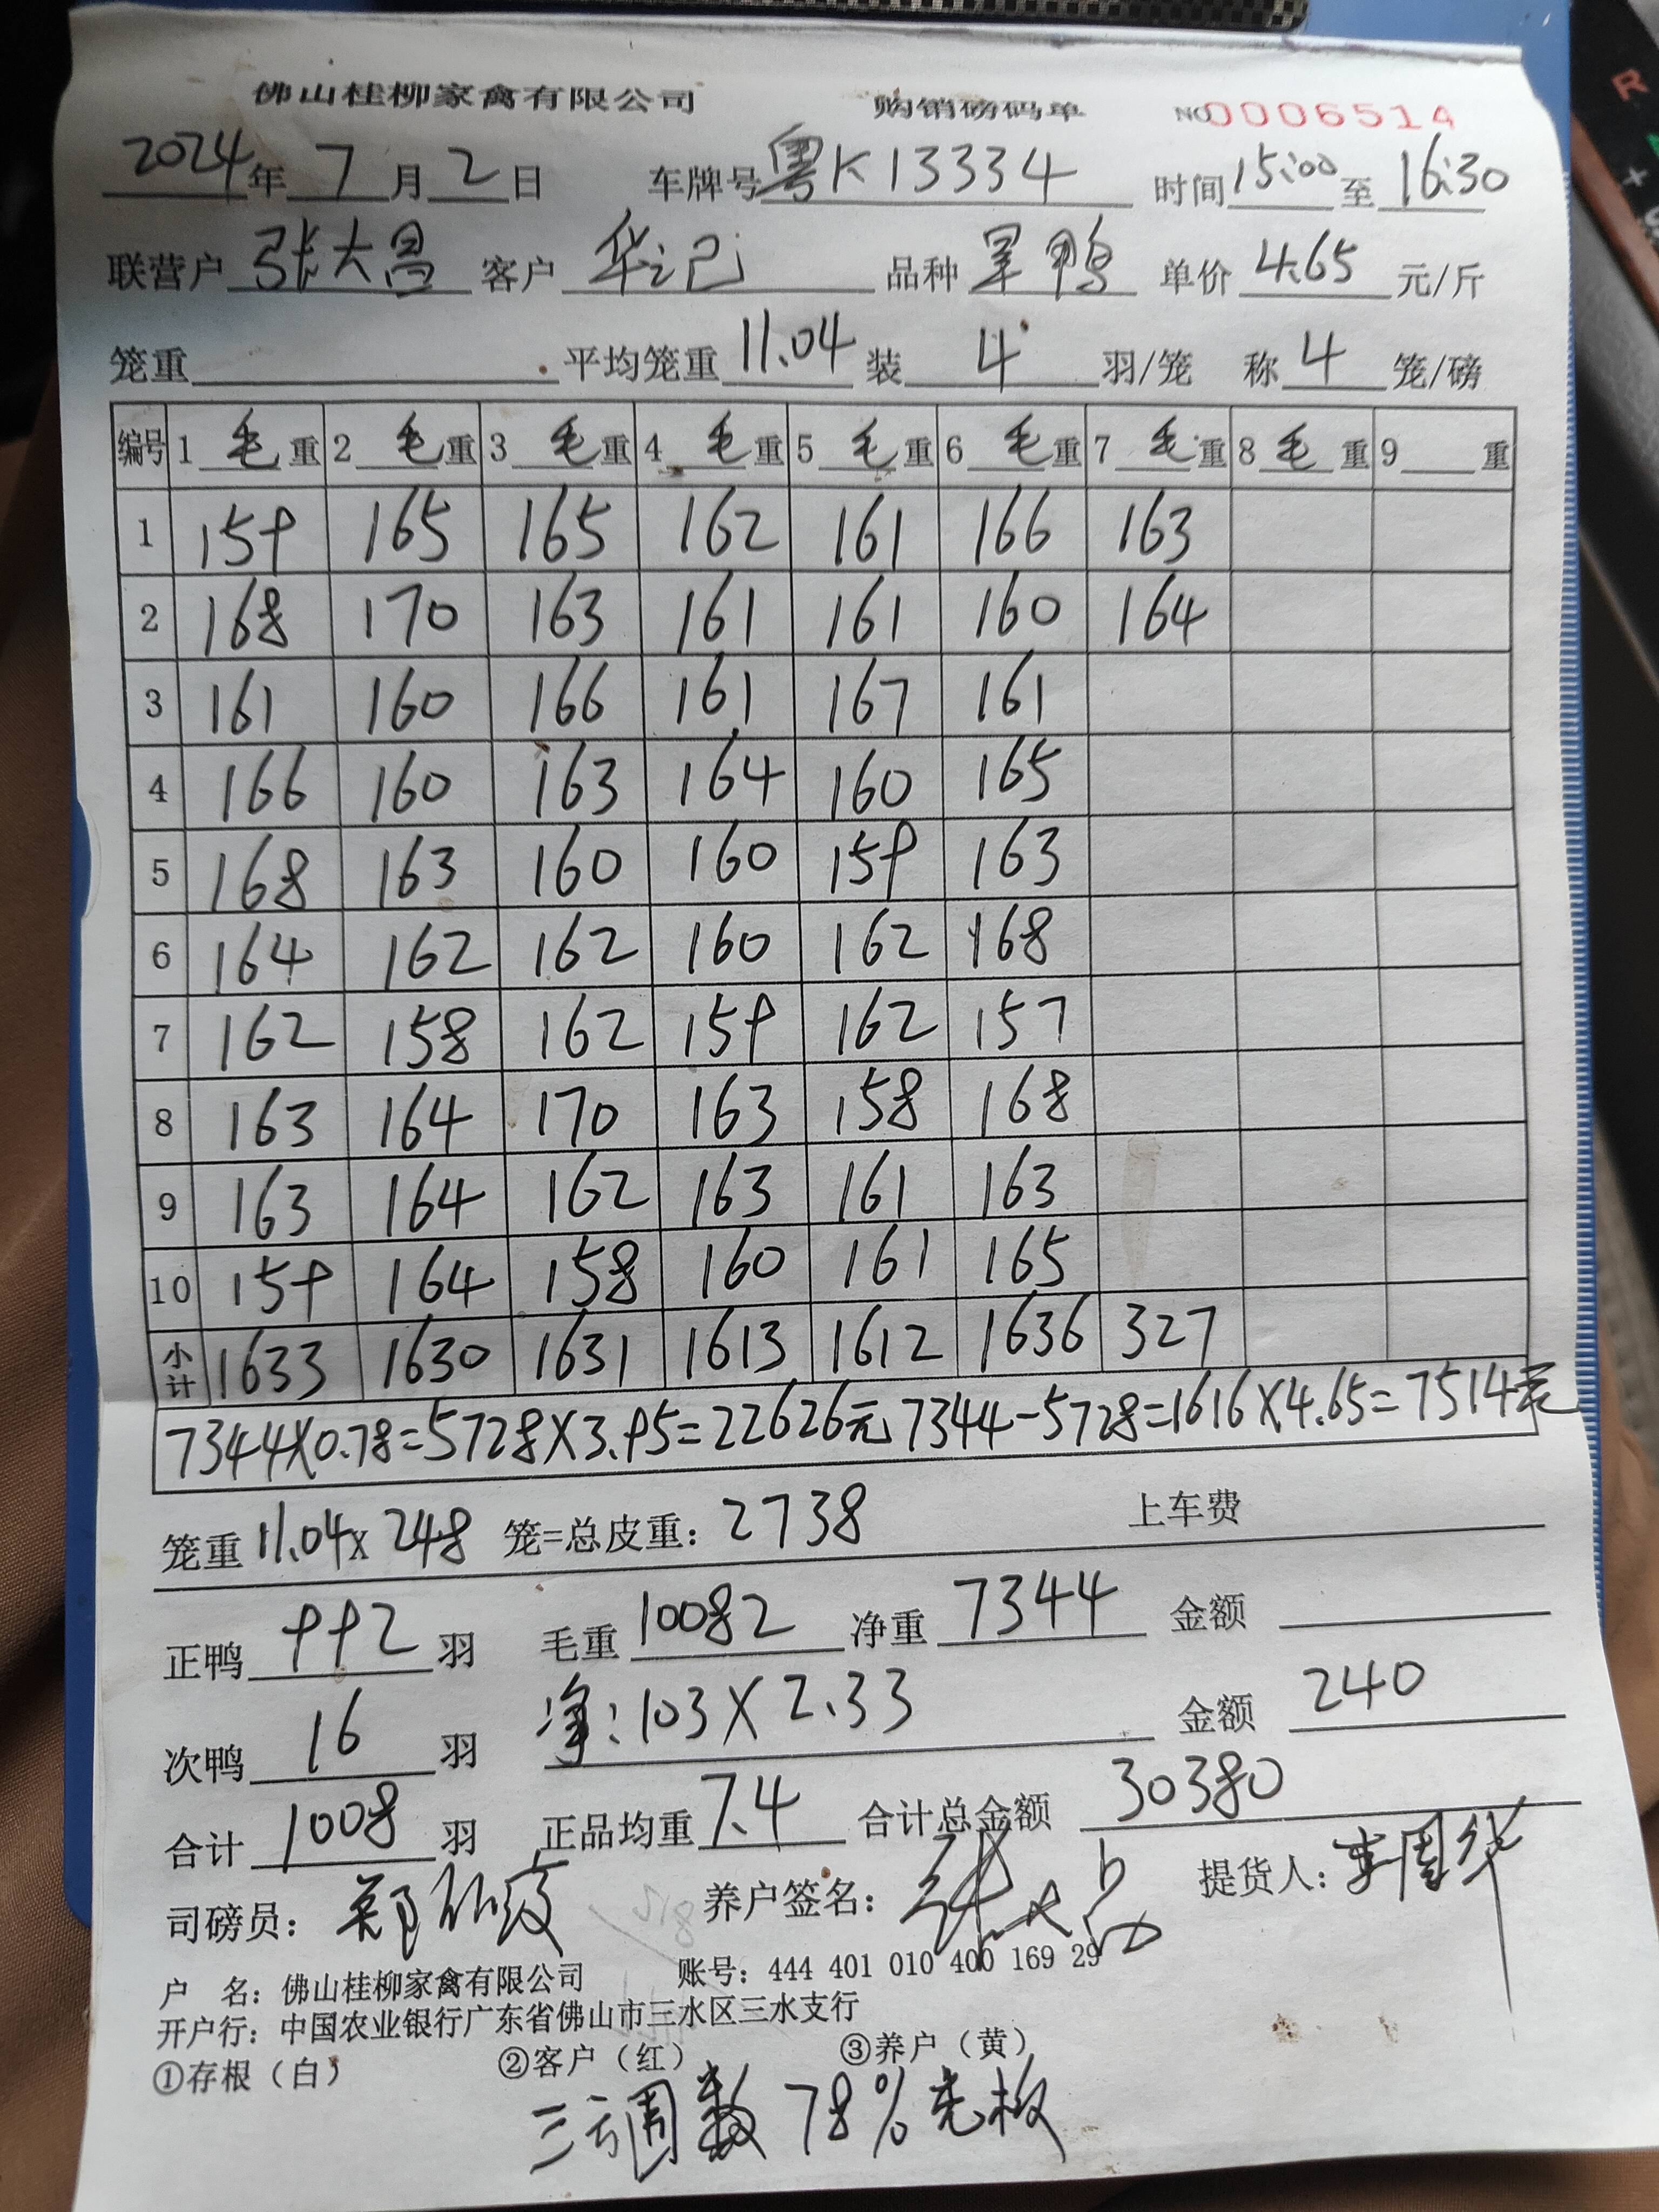 佛山桂柳家禽有限公司 购销磅码单 NO 0006514
2024年 7月 2日 车牌号 粤K13334 时间 15:00 至 16:30
联营户 张大昌 客户 华记 品种 旱鸭 单价 4.65 元/斤
笼重 平均笼重 11.04 装 4 羽/笼 称 4 笼/磅
编号 1 毛 重 2 毛 重 3 毛 重 4 毛 重 5 毛 重 6 毛 重 7 毛 重 8 毛 重 9 重
1 159 165 165 162 161 166 163
2 168 170 163 161 161 160 164
3 161 160 166 161 167 161
4 166 160 163 164 160 165
5 168 163 160 160 159 163
6 164 162 162 160 162 168
7 162 158 162 159 162 157
8 163 164 170 163 158 168
9 163 164 162 163 161 163
10 159 164 158 160 161 165
小计 1633 1630 1631 1613 1612 1636 327
7344×0.78=5728×3.95=22626元 7344-5728=1616×4.65=7514元
笼重 11.04× 248 笼=总皮重: 2738 上车费
正鸭 992 羽 毛重 10082 净重 7344 金额
次鸭 16 羽 净:103×2.33 金额 240
合计 1008 羽 正品均重 7.4 合计总金额 30380
司磅员: 郑 养户签名: 张大昌 提货人: 李周华
户 名: 佛山桂柳家禽有限公司 账号: 444 401 010 400 169 29
开户行: 中国农业银行广东省佛山市三水区三水支行
①存根(白) ②客户(红) ③养户(黄)
调数 78% 光板